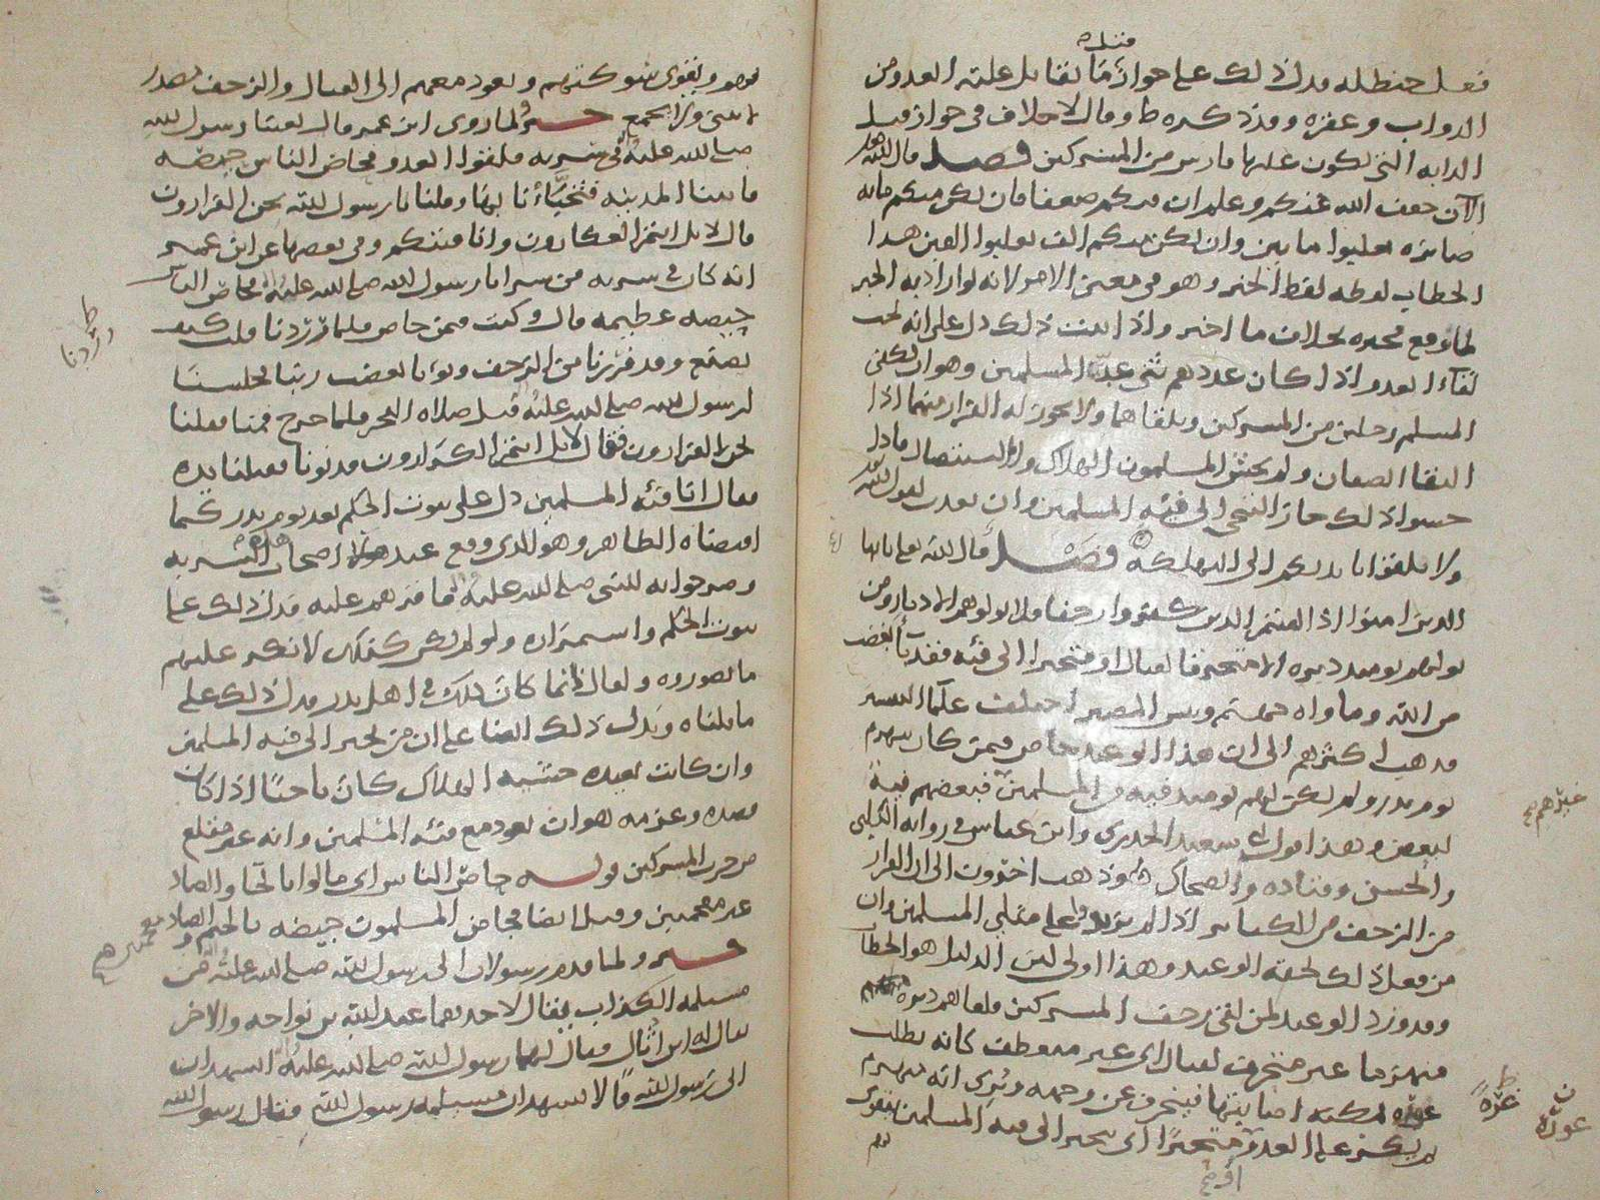 قتله
فعل حنظله فدل ذلك على جواز ما يقاتل عليه العدو من
الدواب وعقره وقد ذكره ط وقال لا خلاف في جواز قتل
الدابه التي تكون عليها فارس من المشركين فصل قال الله
الآن خفف الله عنكم وعلم ان فيكم ضعفا فان تكن منكم مائه
صابره يغلبوا مايتين وان يكن منكم الف يغلبوا الفين هذا
الخطاب لفظه لفظ الخبر وهو في معنى الامر لانه لو اراد به الخبر
لما وقع مخبره بخلاف ما اخبر واذا ثبت ذلك دل على انه يجب
لقاء العدو اذا كان عددهم مثلي عدة المسلمين وهو ان يكفي
المسلم رجلين من المشركين ويلقاهما ولا يجوز له الفرار منهما اذا
التقا الصفان ولم يخش المسلمون الهلاك والاستئصال فاذا
خشوا ذلك جاز التنحي الى فئه المسلمين وان بعدت لقول الله
ولا تلقوا بايديكم الى التهلكه فصل قال الله تعالى يايها
الذين امنوا اذا لقيتم الذين كفروا زحفا فلا تولوهم الادبار ومن
يولهم يومئذ دبره الا متحرفا لقتال او متحيزا الى فئه فقد باء بغضب
من الله وماواه جهنم وبئس المصير اختلفت علماء التفسير
فذهب اكثرهم الى ان هذا الوعيد خاص فيمن كان ينهزم
يوم بدر ولم يكن لهم يومئذ فئه من المسلمين فبعضهم فئة
لبعض وهذا قول ابي سعيد الخدري وابن عباس في روايه الكلبي
والحسن وقتاده والضحاك وذهب اخرون الى ان الفرار
من الزحف من الكبائر اذا لم يزيدوا على مثلي المسلمين وان
من فعل ذلك لحقه الوعيد وهذا اولى لان الدليل هو الخطاب
وقد ورد الوعيد لمن لقي زحف المشركين فلقاهم دبره
منهزما غير متحرف لقتال اي غير منعطف كانه يطلب
عوره يمكنه اصابتها فينحرف عن وجهه ويري انه ينهزم
ثم يكر على العدو او متحيزا اي ينحيز الى فئه المسلمين يتقوى
بهم
غيرهم صح
غرة
عورة
او صح
بهم ويقوى شوكتهم ويعود معهم الى القتال والزحف بصدر
خبر ولما روى ابن عمر قال بعثنا رسول الله
صلى الله عليه في سريه فلقوا العدو فحاص الناس حيصه
فاتينا المدينه فتخبأنا بها وقلنا يا رسول الله نحن الفرارون
قال لا بل انتم العكارون وانا فئتكم وفي بعضها عن ابن عمر
انه كان في سريه من سرايا رسول الله صلى الله عليه فحاص الناس
حيصه عظيمه قال وكنت فيمن حاص فلما فررنا قلت كيف
نصنع وقد فررنا من الزحف وبؤنا بغضب ربنا فجلسنا
لرسول الله صلى الله عليه قبل صلاه الفجر فلما خرج قمنا فقلنا
نحن الفرارون فقال لا بل انتم الكرارون فدنونا فقبلنا يده
فقال انا فئه المسلمين دل على ثبوت الحكم بعد يوم بدر كما
اقتضاه الظاهر وهو الذي وقع عند هؤلاء اصحاب السريه
وصرحوا به للنبي صلى الله عليه فاقرهم عليه فدل ذلك على
ثبوت الحكم واستمراره ولو لم يكن كذلك لانكر عليهم
ما تصوروه ولقال انما كان ذلك في اهل بدر فدل ذلك على
ما قلناه ويدل ذلك ايضا على ان من تحيز الى فئه المسلمين
وان كانت بعيده خشية الهلاك كان ناجيا اذا كان
قصده وعزمه هو ان يعود مع فئه المسلمين وانه غير مقلع
من حرب المشركين قوله حاص الناس اي مالوا بالحا والصاد
غير معجمين وقيل ايضا فجاض المسلمون جيضه بالجيم والضاد
خبر ولما قدم رسولان الى رسول الله صلى الله عليه من
مسيلمه الكذاب يقال لاحدهما عبد الله بن نواحه والاخر
يقال له ابن أثال فقال لهما رسول الله صلى الله عليه اتشهدان
اني رسول الله قالا نشهد ان مسيلمه رسول الله فقال رسول الله